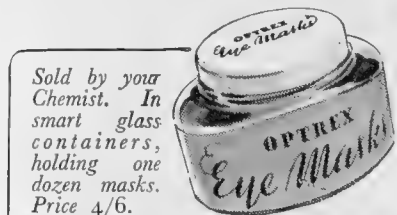 Sold by your
Chemist. In
smart glass
containers,
holding one
dozen masks.
Price 4/6.
OPTREX
Eye Masks
OPTREX
Eye Masks